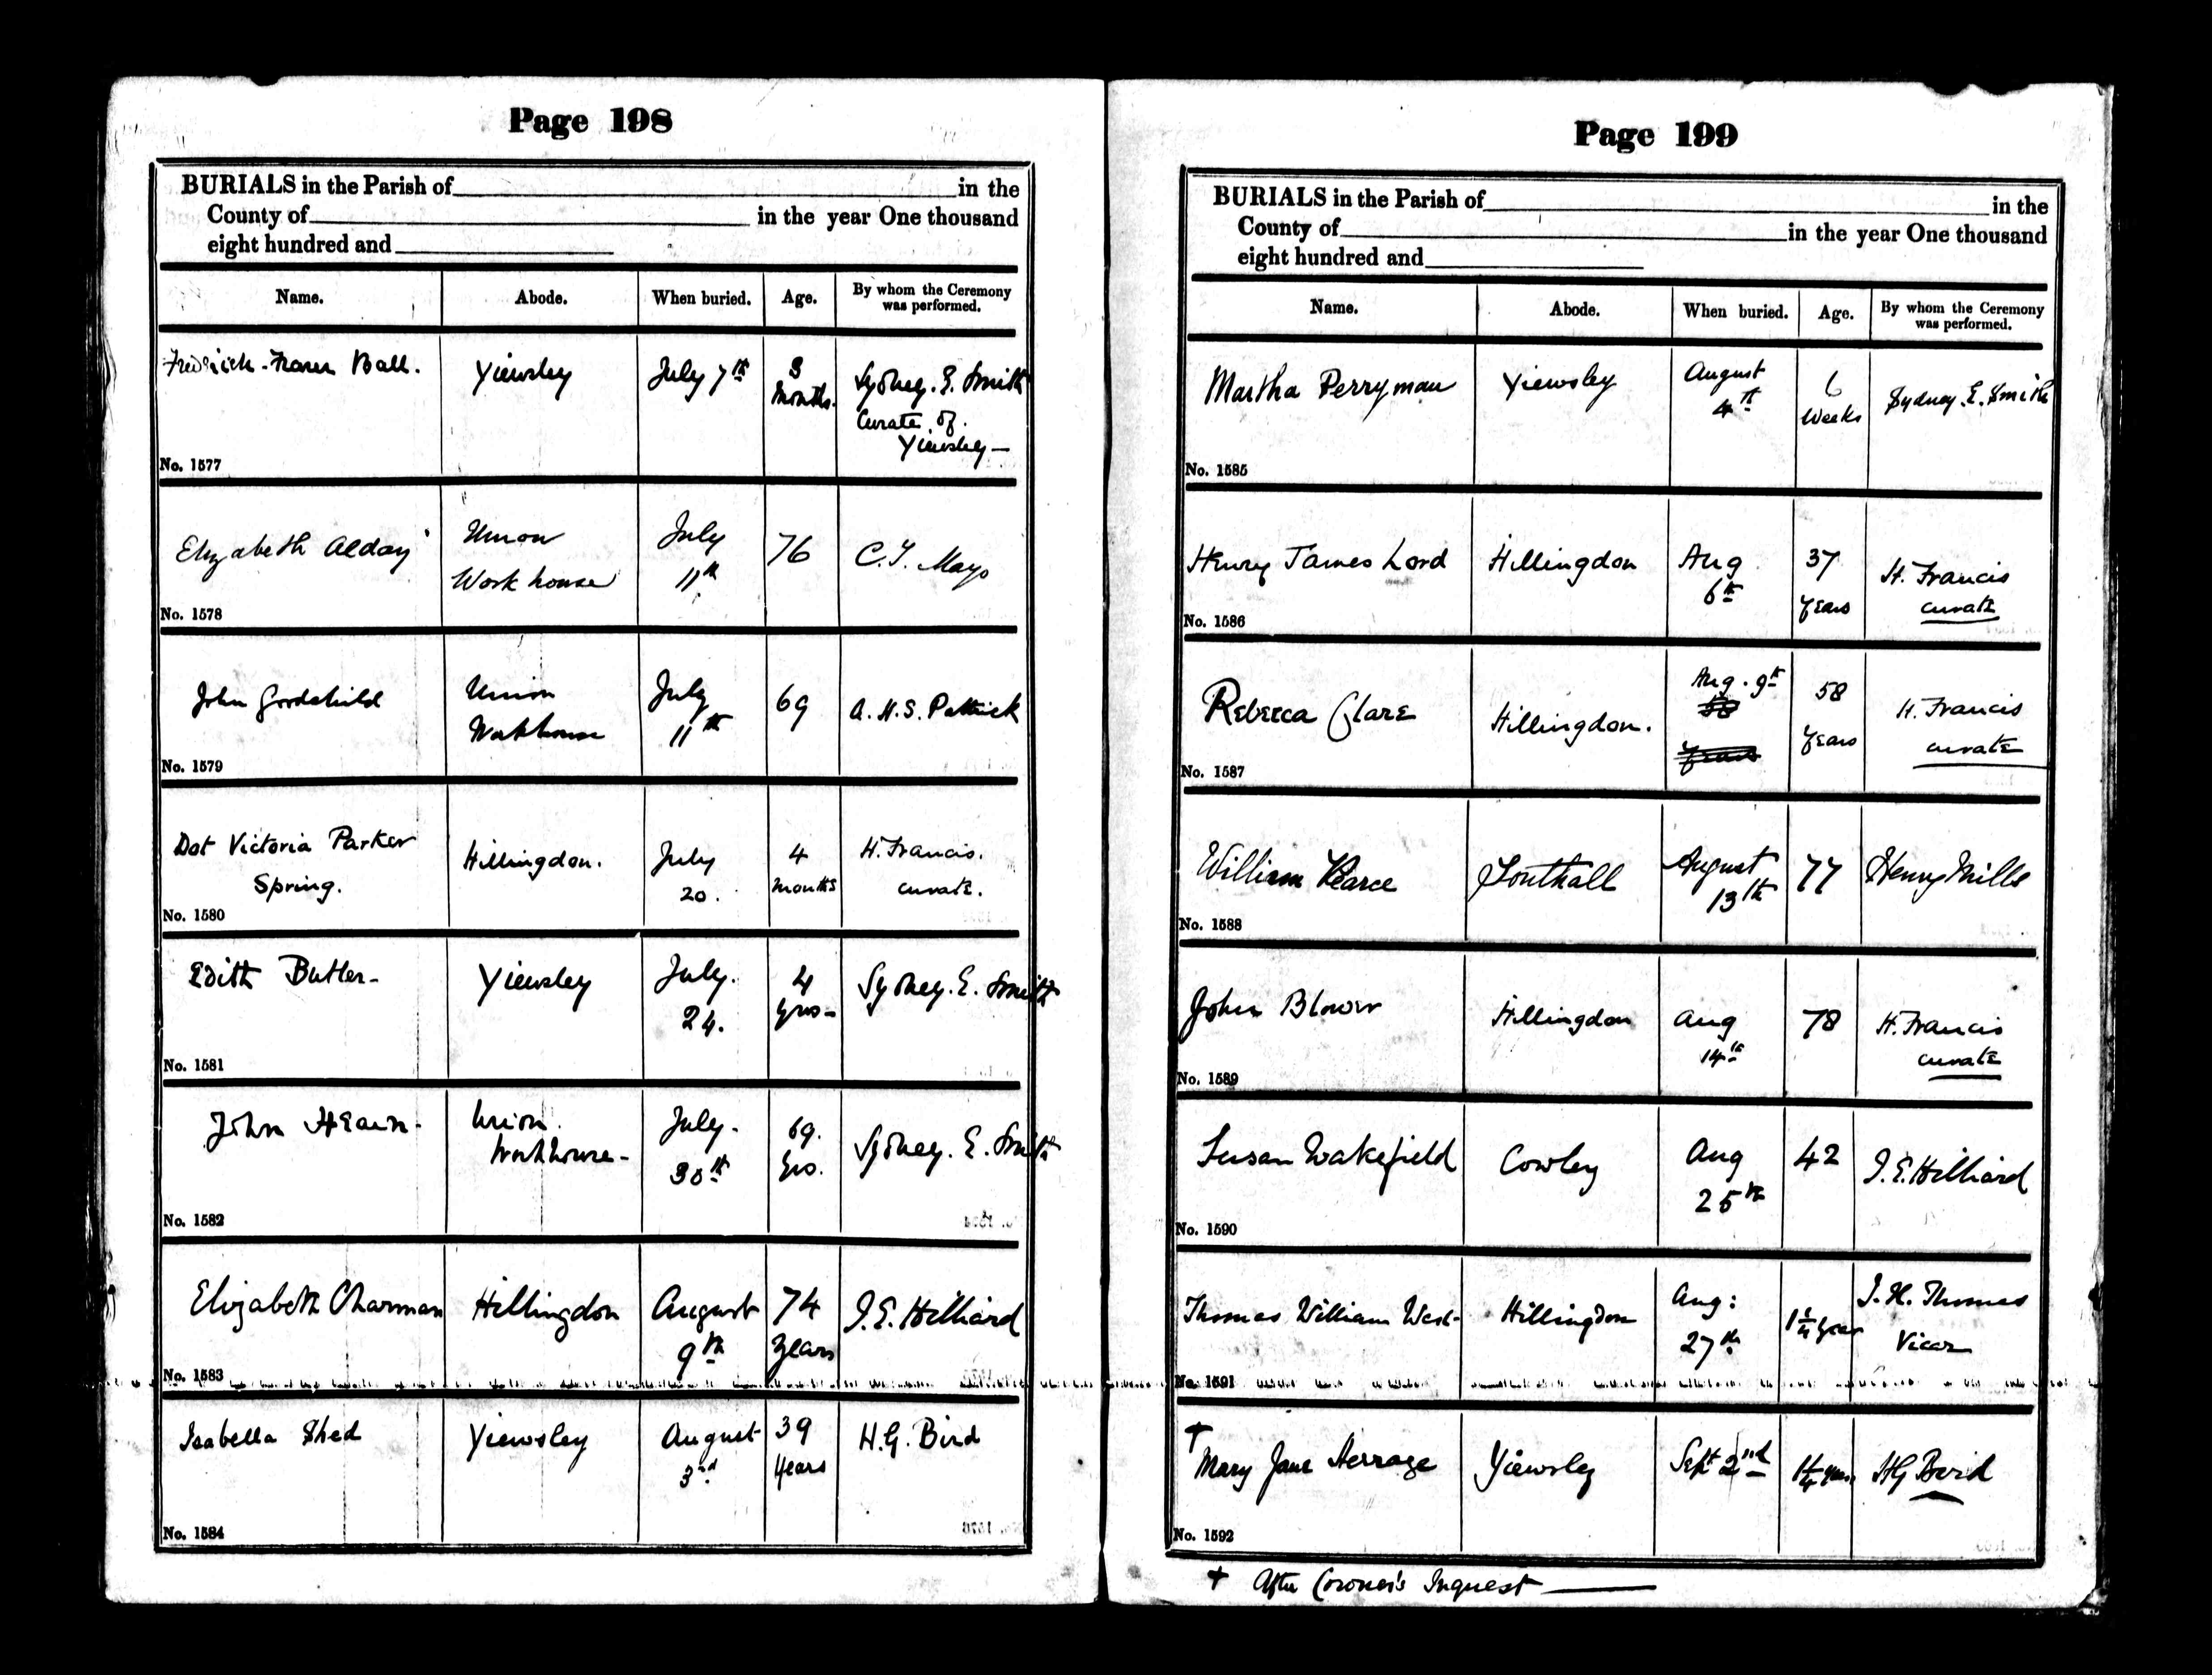 Page 198
BURIALS in the Parish of in the
County of in the year One thousand
eight hundred and
Name. Abode. When buried. Age. By whom the Ceremony was performed.
Ball. Yiewsley July 7th months. Sydney. E. Smith
Curate of
Yiewsley —
No. 1577
Elizabeth Alday Union July 76 C. T. Mayo
Work house 11th
No. 1578
John Goodchild Union July 69 A. H. S. Pattrick
Workhouse 11th
No. 1579
Dot Victoria Parker Hillingdon. July 4 H. Francis.
Spring. 20. months curate.
No. 1580
Edith Butler - Yiewsley July. 4 Sydney. E. Smith
24. yrs -
No. 1581
John Hearn - Union. July - 69. Sydney. E. Smith
Workhouse - 30th yrs.
No. 1582
Elizabeth Charman Hillingdon August 74 J. E. Hilliard
9th years
No. 1583
Isabella Shed Yiewsley August 39 H. G. Bird
3rd years
No. 1584
Page 199
BURIALS in the Parish of in the
County of in the year One thousand
eight hundred and
Name. Abode. When buried. Age. By whom the Ceremony was performed.
Martha Perryman Yiewsley August 6 Sydney. E. Smith
4th weeks
No. 1585
Henry James Lord Hillingdon Aug 37 H. Francis
6th years curate
No. 1586
Rebecca Clare Hillingdon. Aug. 9th 58 H. Francis
58 years curate
years
No. 1587
William Pearce Southall August 77 Henry Mills
13th
No. 1588
John Blower Hillingdon Aug 78 H. Francis
14th curate
No. 1589
Susan Wakefield Cowley Aug 42 J. E. Hilliard
25th
No. 1590
Thomas William West - Hillingdon Aug: 1 1/4 year J. H. Thomas
27th Vicar
No. 1591
† Mary Jane Herrage Yiewsley Sept 2nd 1 1/4 years HG Bird
No. 1592
† After Coroner's Inquest —